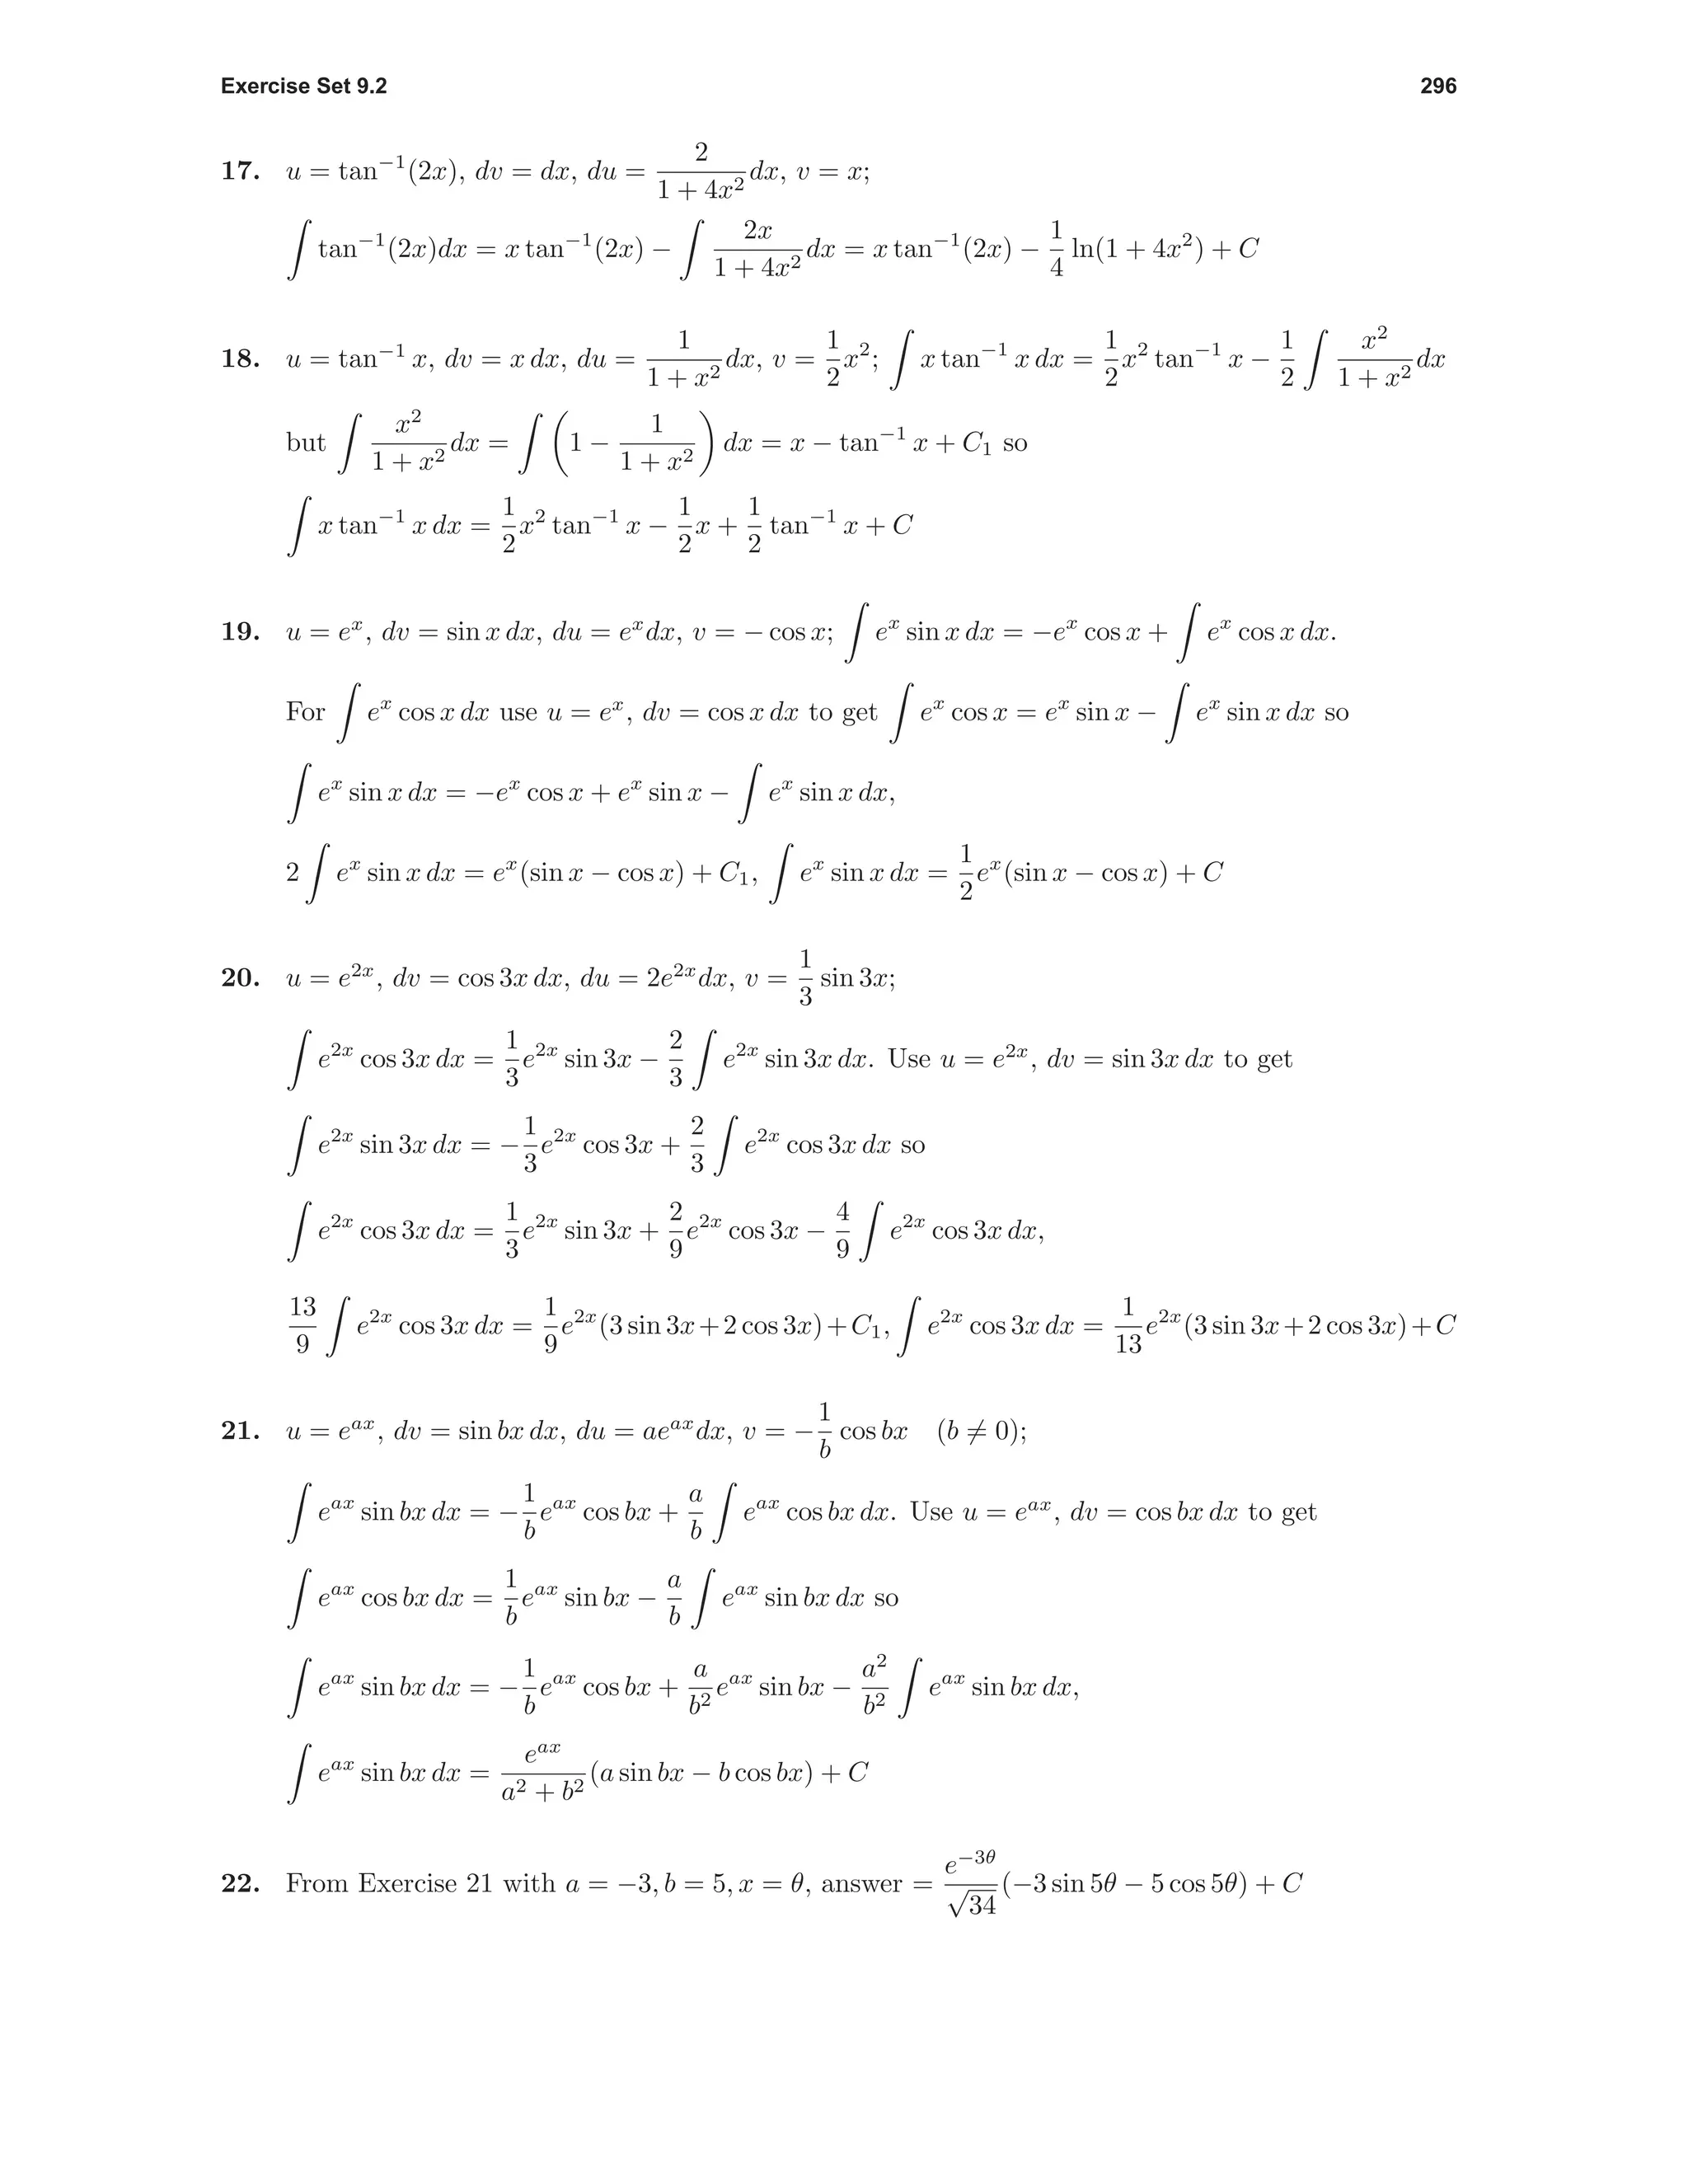 Exercise Set 9.2 296
17. u = tan⁻¹(2x), dv = dx, du = \frac{2}{1 + 4x²}dx, v = x;
∫ tan⁻¹(2x)dx = x tan⁻¹(2x) − ∫ \frac{2x}{1 + 4x²}dx = x tan⁻¹(2x) − \frac{1}{4} ln(1 + 4x²) + C
18. u = tan⁻¹ x, dv = x dx, du = \frac{1}{1 + x²}dx, v = \frac{1}{2}x²; ∫ x tan⁻¹ x dx = \frac{1}{2}x² tan⁻¹ x − \frac{1}{2} ∫ \frac{x²}{1 + x²}dx
but ∫ \frac{x²}{1 + x²}dx = ∫ (1 − \frac{1}{1 + x²}) dx = x − tan⁻¹ x + C₁ so
∫ x tan⁻¹ x dx = \frac{1}{2}x² tan⁻¹ x − \frac{1}{2}x + \frac{1}{2} tan⁻¹ x + C
19. u = e^x, dv = sin x dx, du = e^x dx, v = − cos x; ∫ e^x sin x dx = −e^x cos x + ∫ e^x cos x dx.
For ∫ e^x cos x dx use u = e^x, dv = cos x dx to get ∫ e^x cos x = e^x sin x − ∫ e^x sin x dx so
∫ e^x sin x dx = −e^x cos x + e^x sin x − ∫ e^x sin x dx,
2 ∫ e^x sin x dx = e^x(sin x − cos x) + C₁, ∫ e^x sin x dx = \frac{1}{2}e^x(sin x − cos x) + C
20. u = e^{2x}, dv = cos 3x dx, du = 2e^{2x}dx, v = \frac{1}{3} sin 3x;
∫ e^{2x} cos 3x dx = \frac{1}{3}e^{2x} sin 3x − \frac{2}{3} ∫ e^{2x} sin 3x dx. Use u = e^{2x}, dv = sin 3x dx to get
∫ e^{2x} sin 3x dx = −\frac{1}{3}e^{2x} cos 3x + \frac{2}{3} ∫ e^{2x} cos 3x dx so
∫ e^{2x} cos 3x dx = \frac{1}{3}e^{2x} sin 3x + \frac{2}{9}e^{2x} cos 3x − \frac{4}{9} ∫ e^{2x} cos 3x dx,
\frac{13}{9} ∫ e^{2x} cos 3x dx = \frac{1}{9}e^{2x}(3 sin 3x+2 cos 3x)+C₁, ∫ e^{2x} cos 3x dx = \frac{1}{13}e^{2x}(3 sin 3x+2 cos 3x)+C
21. u = e^{ax}, dv = sin bx dx, du = ae^{ax}dx, v = −\frac{1}{b} cos bx (b ≠ 0);
∫ e^{ax} sin bx dx = −\frac{1}{b}e^{ax} cos bx + \frac{a}{b} ∫ e^{ax} cos bx dx. Use u = e^{ax}, dv = cos bx dx to get
∫ e^{ax} cos bx dx = \frac{1}{b}e^{ax} sin bx − \frac{a}{b} ∫ e^{ax} sin bx dx so
∫ e^{ax} sin bx dx = −\frac{1}{b}e^{ax} cos bx + \frac{a}{b²}e^{ax} sin bx − \frac{a²}{b²} ∫ e^{ax} sin bx dx,
∫ e^{ax} sin bx dx = \frac{e^{ax}}{a² + b²}(a sin bx − b cos bx) + C
22. From Exercise 21 with a = −3, b = 5, x = θ, answer = \frac{e^{−3θ}}{√34}(−3 sin 5θ − 5 cos 5θ) + C